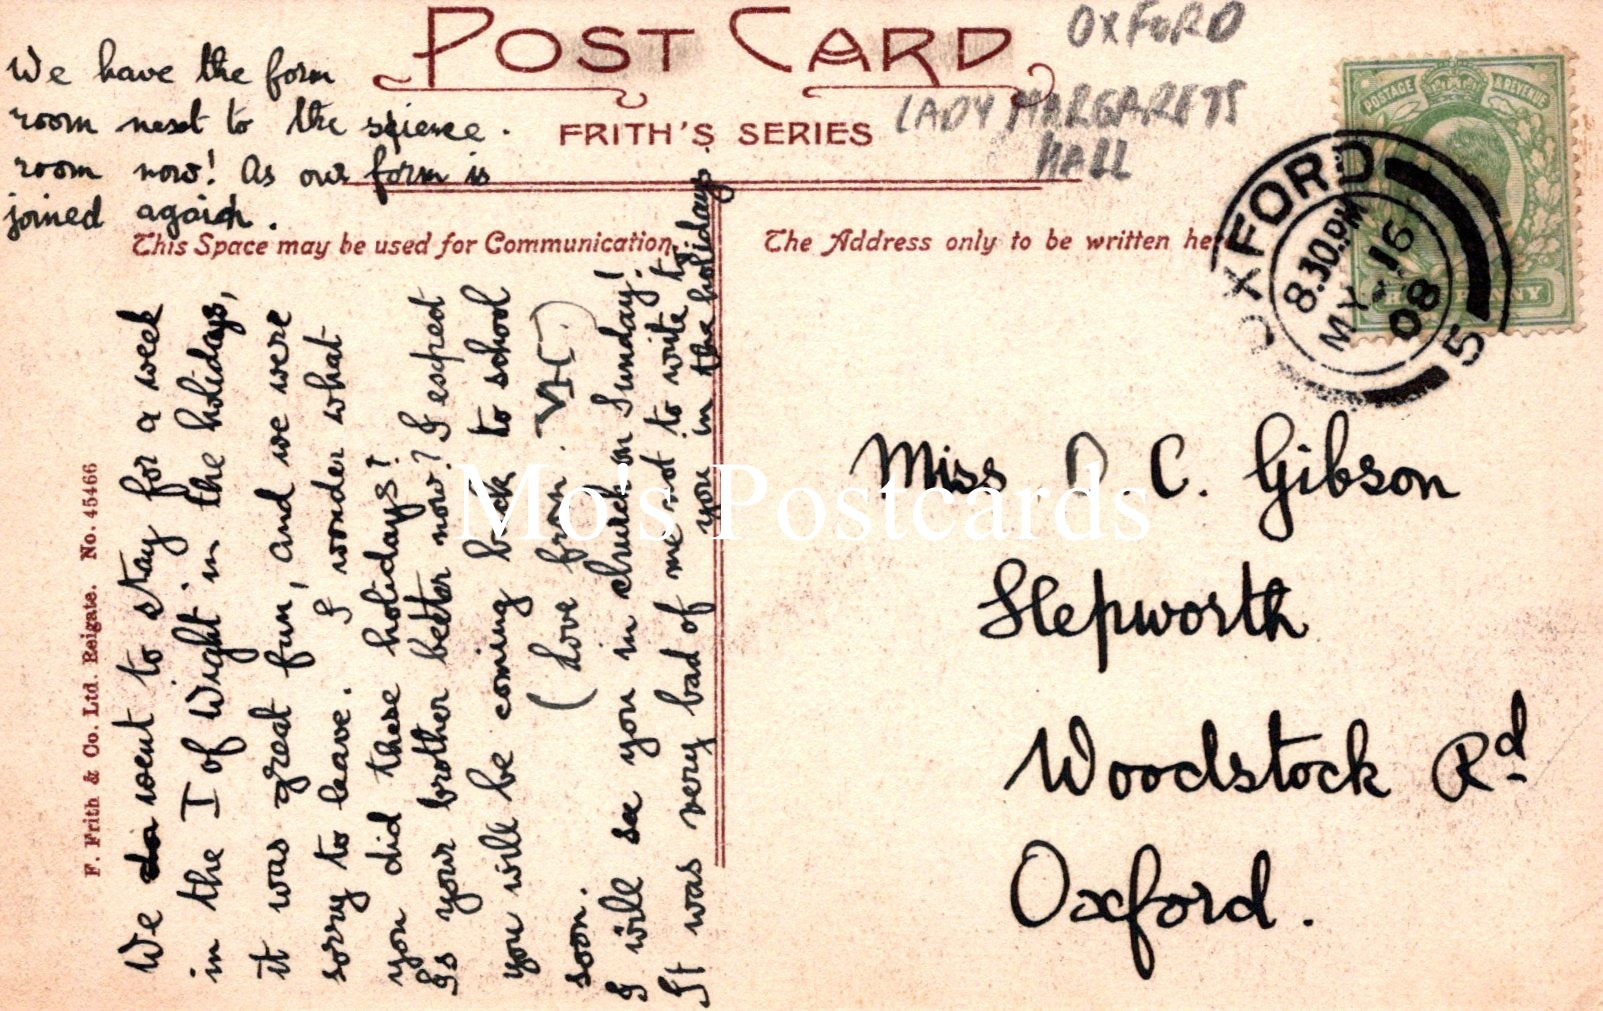 POST CARD
FRITH'S SERIES
OXFORD
LADY MARGARETS
HALL
POSTAGE & REVENUE
HALFPENNY
OXFORD
8.30.PM
MY 16
08
5
We have the form
room next to the science
room now! As our form is
joined again.
This Space may be used for Communication.
The Address only to be written here
F. Frith & Co. Ltd. Reigate. No. 45466
We went to stay for a week
in the I of Wight in the holidays,
it was great fun, and we were
sorry to leave. I wonder what
you did these holidays?
Is your brother better now? I expect
you will be coming back to school
soon. (Love from VH.)
I will see you in church on Sunday!
It was very bad of me not to write to
you in the holidays.
Miss D C. Gibson
Hepworth
Woodstock Rd
Oxford.
Mo's Postcards